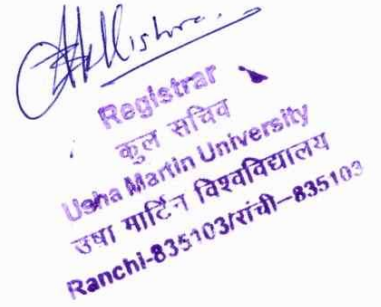 Mishra
Registrar
कुल सचिव
Usha Martin University
उषा मार्टिन विश्वविद्यालय
Ranchi-835103/रांची-835103